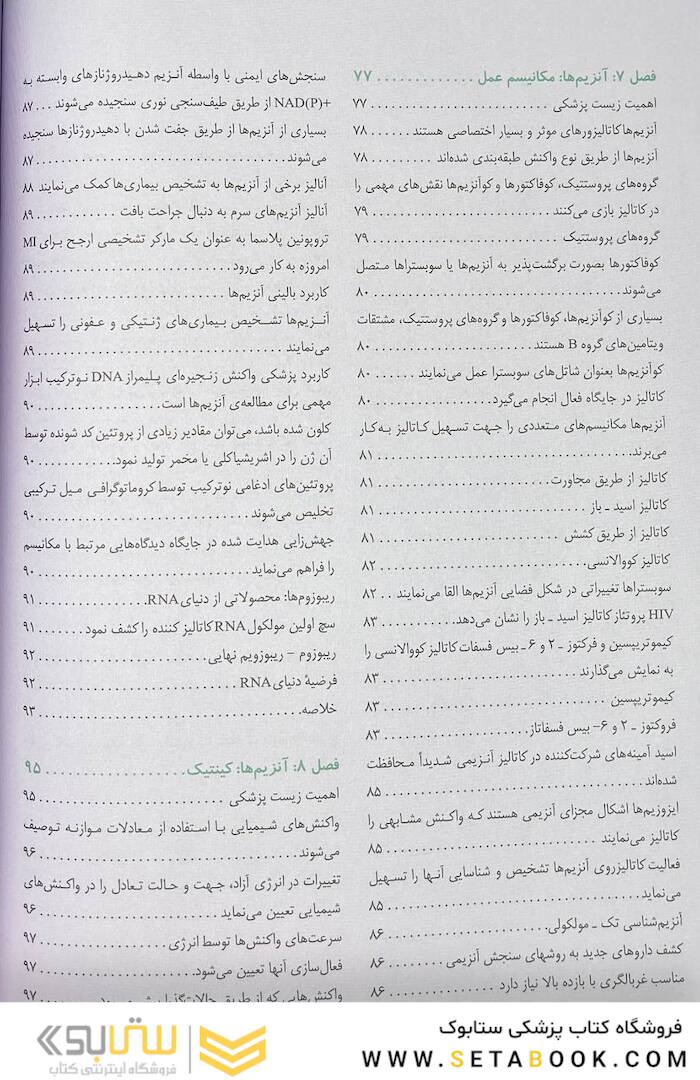 فصل ۷: آنزیم‌ها: مکانیسم عمل ............. ۷۷
اهمیت زیست پزشکی .......................... ۷۷
آنزیم‌ها کاتالیزورهای موثر و بسیار اختصاصی هستند ...... ۷۸
آنزیم‌ها از طریق نوع واکنش طبقه‌بندی شده‌اند .......... ۷۸
گروه‌های پروستتیک، کوفاکتورها و کوآنزیم‌ها نقش‌های مهمی را
در کاتالیز بازی می‌کنند .......................... ۷۹
گروه‌های پروستتیک .......................... ۷۹
کوفاکتورها بصورت برگشت‌پذیر به آنزیم‌ها یا سوبستراها متصل
می‌شوند .......................... ۸۰
بسیاری از کوآنزیم‌ها، کوفاکتورها و گروه‌های پروستتیک، مشتقات
ویتامین‌های گروه B هستند .......................... ۸۰
کوآنزیم‌ها بعنوان شاتل‌های سوبسترا عمل می‌نمایند ...... ۸۰
کاتالیز در جایگاه فعال انجام می‌گیرد .................. ۸۰
آنزیم‌ها مکانیسم‌های متعددی را جهت تسهیل کاتالیز به‌کار
می‌برند .......................... ۸۱
کاتالیز از طریق مجاورت .......................... ۸۱
کاتالیز اسید ـ باز .......................... ۸۱
کاتالیز از طریق کشش .......................... ۸۱
کاتالیز کووالانسی .......................... ۸۲
سوبستراها تغییراتی در شکل فضایی آنزیم‌ها القا می‌نمایند .. ۸۲
HIV پروتئاز کاتالیز اسید ـ باز را نشان می‌دهد ........... ۸۳
کیموتریپسین و فرکتوز ـ ۲ و ۶ ـ بیس فسفات کاتالیز کووالانسی را
به نمایش می‌گذارند .......................... ۸۳
کیموتریپسین .......................... ۸۳
فروکتوز ـ ۲ و ۶– بیس فسفاتاز .................. ۸۳
اسید آمینه‌های شرکت‌کننده در کاتالیز آنزیمی شدیداً محافظت
شده‌اند .......................... ۸۵
ایزوزیم‌ها اشکال مجزای آنزیمی هستند که واکنش مشابهی را
کاتالیز می‌نمایند .......................... ۸۵
فعالیت کاتالیزروی آنزیم‌ها تشخیص و شناسایی آنها را تسهیل
می‌نماید .......................... ۸۵
آنزیم‌شناسی تک ـ مولکولی .................. ۸۶
کشف داروهای جدید به روشهای سنجش آنزیمی ..........
مناسب غربالگری با بازده بالا نیاز دارد .............. ۸۶
سنجش‌های ایمنی با واسطه آنزیم دهیدروژنازهای وابسته به
NAD(P)+ از طریق طیف‌سنجی نوری سنجیده می‌شوند ... ۸۷
بسیاری از آنزیم‌ها از طریق جفت شدن با دهیدروژنازها سنجیده
می‌شوند .......................... ۸۷
آنالیز برخی از آنزیم‌ها به تشخیص بیماری‌ها کمک می‌نمایند ۸۸
آنالیز آنزیم‌های سرم به دنبال جراحت بافت ............ ۸۹
تروپونین پلاسما به عنوان یک مارکر تشخیصی ارجح برای MI
امروزه به کار می‌رود .......................... ۸۹
کاربرد بالینی آنزیم‌ها .......................... ۸۹
آنزیم‌ها تشخیص بیماری‌های ژنتیکی و عفونی را تسهیل
می‌نمایند .......................... ۸۹
کاربرد پزشکی واکنش زنجیره‌ای پلیمراز DNA نوترکیب ابزار
مهمی برای مطالعه‌ی آنزیم‌ها است .................. ۹۰
کلون شده باشد، می‌توان مقادیر زیادی از پروتئین کد شونده توسط
آن ژن را در اشریشیاکلی یا مخمر تولید نمود ............ ۹۰
پروتئین‌های ادغامی نوترکیب توسط کروماتوگرافی میل ترکیبی
تخلیص می‌شوند .......................... ۹۰
جهش‌زایی هدایت شده در جایگاه دیدگاه‌هایی مرتبط با مکانیسم
را فراهم می‌نماید .......................... ۹۰
ریبوزوم‌ها: محصولاتی از دنیای RNA .................. ۹۱
سچ اولین مولکول RNA کاتالیز کننده را کشف نمود ....... ۹۱
ریبوزوم – ریبوزویم نهایی .................. ۹۲
فرضیهٔ دنیای RNA .......................... ۹۲
خلاصه .......................... ۹۳
فصل ۸: آنزیم‌ها: کینتیک .................. ۹۵
اهمیت زیست پزشکی .......................... ۹۵
واکنش‌های شیمیایی با استفاده از معادلات موازنه توصیف
می‌شوند .......................... ۹۶
تغییرات در انرژی آزاد، جهت و حالت تعادل را در واکنش‌های
شیمیایی تعیین می‌نماید .......................... ۹۶
سرعت‌های واکنش‌ها توسط انرژی .................. ۹۷
فعال‌سازی آنها تعیین می‌شود .................. ۹۷
واکنش‌هایی که از طریق حالات ۹۷
ستابوک
فروشگاه اینترنتی کتاب
فروشگاه کتاب پزشکی ستابوک
WWW.SETABOOK.COM